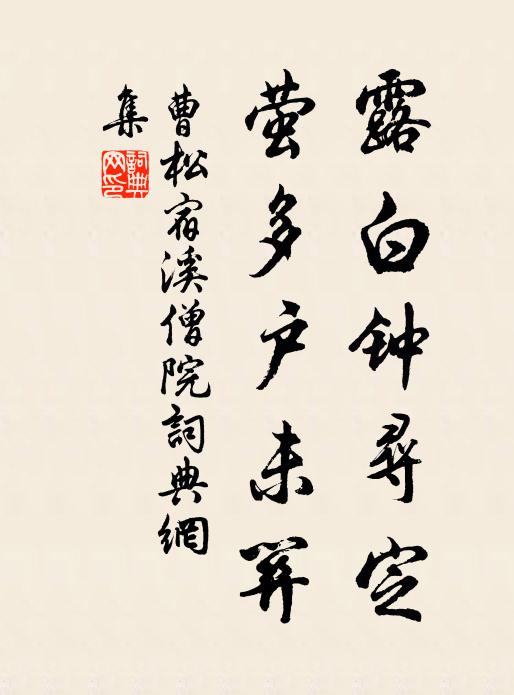 露白钟尋定
萤多户未关
曹松宿溪僧院詞典網
集
詞典
网印